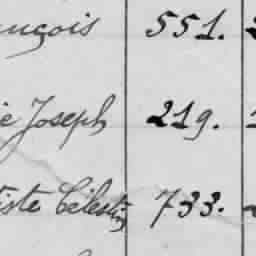 ançois 551.
ie Joseph 219.
iste Célestin 733.